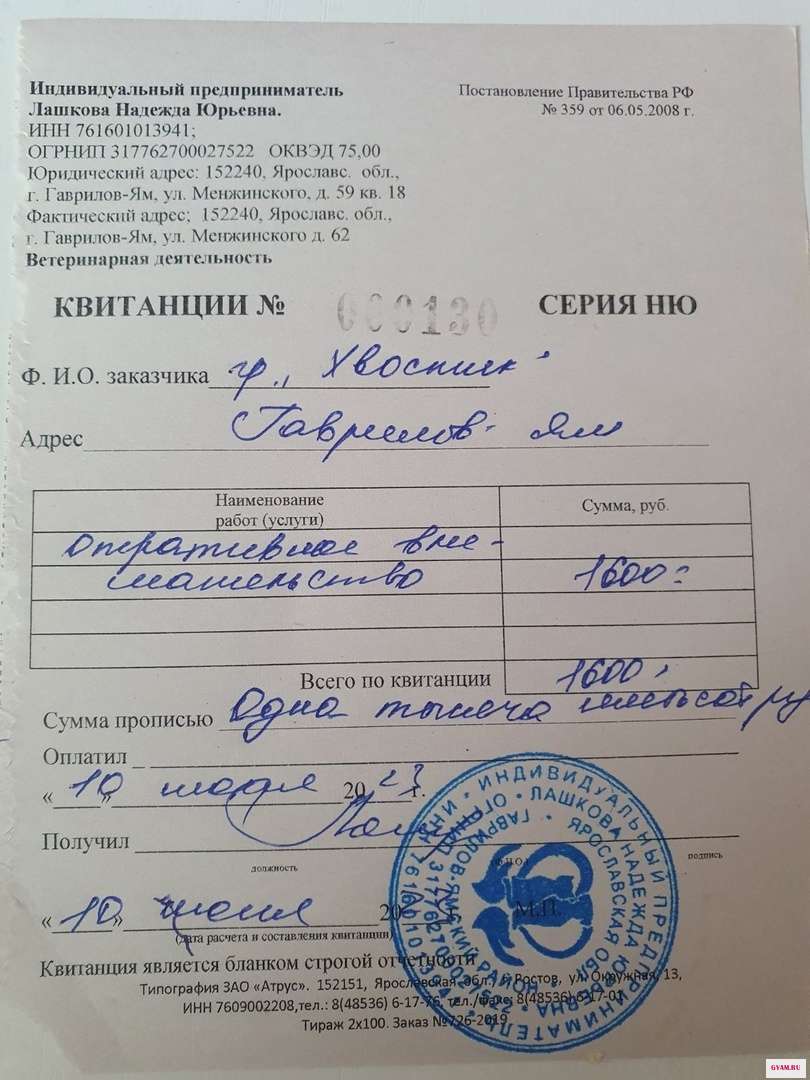 Индивидуальный предприниматель
Лашкова Надежда Юрьевна.
ИНН 761601013941;
ОГРНИП 317762700027522 ОКВЭД 75,00
Юридический адрес: 152240, Ярославс. обл.,
г. Гаврилов-Ям, ул. Менжинского, д. 59 кв. 18
Фактический адрес; 152240, Ярославс. обл.,
г. Гаврилов-Ям, ул. Менжинского д. 62
Ветеринарная деятельность
Постановление Правительства РФ
№ 359 от 06.05.2008 г.
КВИТАНЦИИ № 000130 СЕРИЯ НЮ
Ф. И.О. заказчика гр,, Хвостик"
Адрес Гаврилов-Ям
Наименование
работ (услуги)
Сумма, руб.
Оперативное вме-
шательство 1600=
Всего по квитанции 1600,
Сумма прописью Одна тысяча шестьсот ру
Оплатил
«10» 2023г.
Получил
должность
подпись
«10» 20
М.П.
(дата расчета и составления квитанции)
Квитанция является бланком строгой отчетности
Типография ЗАО «Атрус». 152151, Ярославская обл., г. Ростов, ул. Окружная, 13,
ИНН 7609002208,тел.: 8(48536) 6-17-76, тел./факс: 8(48536) 6-17-01
Тираж 2х100. Заказ №726-2019
ИНДИВИДУАЛЬНЫЙ ПРЕДПРИНИМАТЕЛЬ • ИНН 761601013941
ЛАШКОВА НАДЕЖДА ЮРЬЕВНА • ОГРНИП 317762700027522
ЯРОСЛАВСКАЯ ОБЛ. ГАВРИЛОВ-ЯМСКИЙ РАЙОН
GVAM.RU